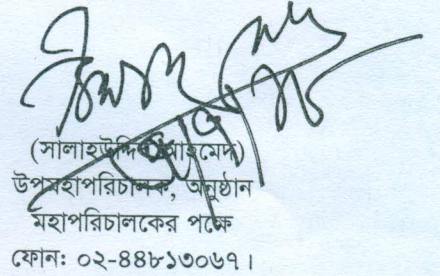 (সালাহউদ্দিন আহমেদ)
উপমহাপরিচালক, অনুষ্ঠান
মহাপরিচালকের পক্ষে
ফোন: ০২-৪৪৮১৩০৬৭।